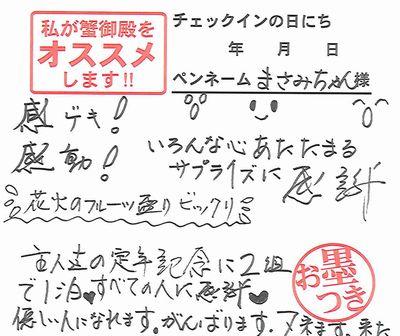 私が蟹御殿を
オススメ
します!!
チェックインの日にち
年 月 日
ペンネーム まさみちゃん 様
感ゲキ!
感動!
いろんな心あたたまる
サプライズに感謝
花火のフルーツ盛りビックリ
主人達の定年記念に2組
で1泊♥すべての人に感謝♥
優しい人になれます。がんばります。
お墨つき